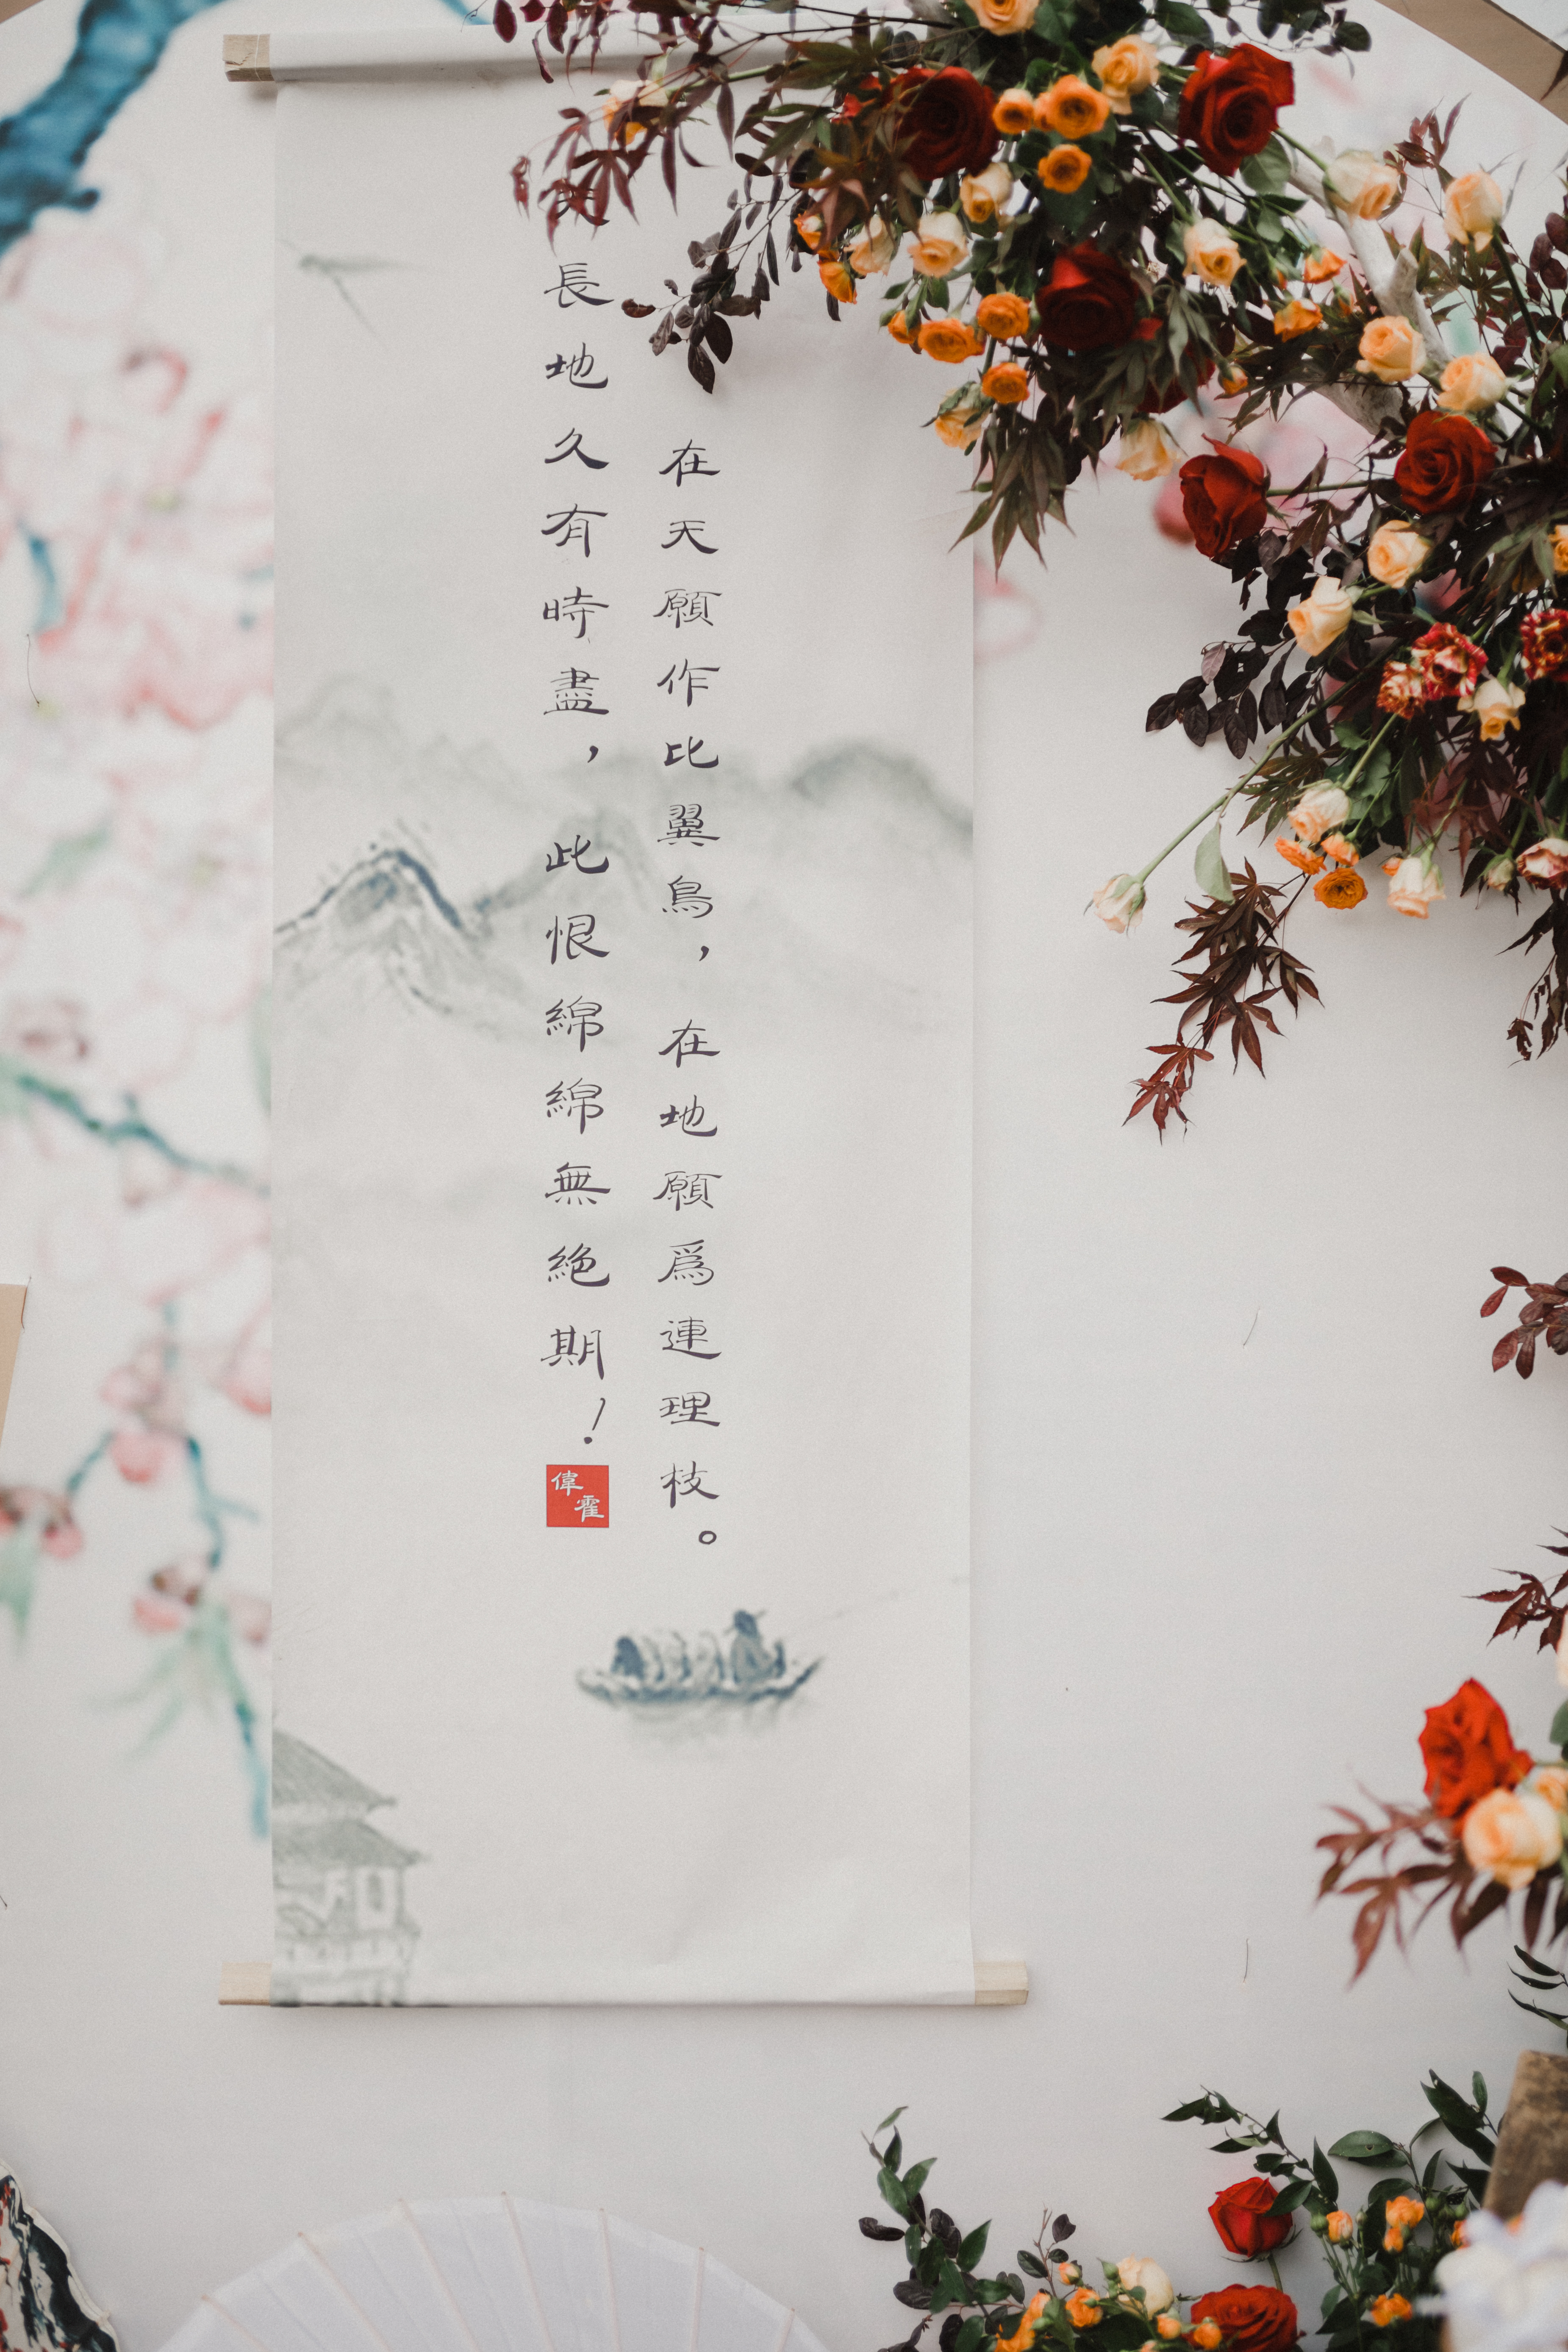 在天願作比翼鳥，在地願爲連理枝。
長地久有時盡，此恨綿綿無絶期！
偉霍